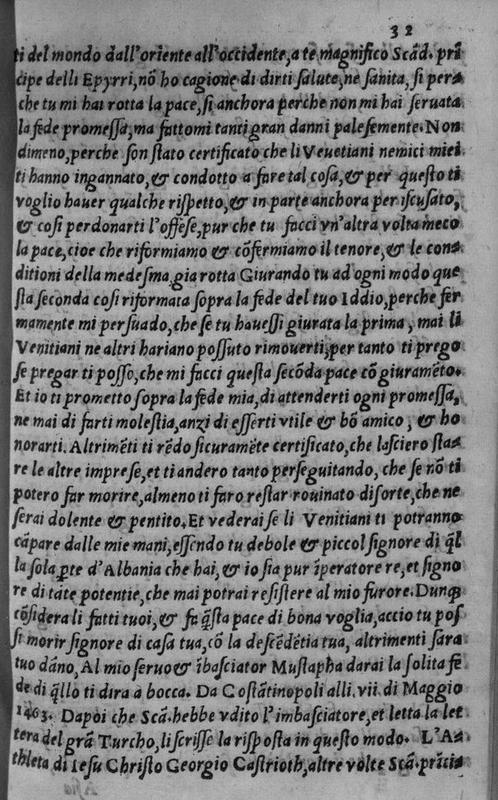 32
ti del mondo dall'oriente all'occidente, a te magnifico Scãd. prĩ
cipe delli Epyrri, nõ ho cagione di dirti salute, ne sanita, si per-
che tu mi hai rotta la pace, si anchora perche non mi hai seruata
la fede promessa, ma fattomi tanti gran danni palesemente. Non
dimeno, perche son stato certificato che li Veuetiani nemici miei
ti hanno ingannato, & condotto a fare tal cosa, & per questo ti
voglio hauer qualche rispetto, & in parte anchora per iscusato,
& cosi perdonarti l'offese, pur che tu facci vn'altra volta meco
la pace, cioe che riformiamo & cõfermiamo il tenore, & le con-
ditioni della medesma, gia rotta Giurando tu ad ogni modo que
sta seconda cosi riformata sopra la fede del tuo Iddio, perche fer
mamente mi persuado, che se tu hauessi giurata la prima, mai li
Venitiani ne altri hariano possuto rimouerti, per tanto ti prego
se pregar ti posso, che mi facci questa secõda pace cõ giuramẽto.
Et io ti prometto sopra la fede mia, di attenderti ogni promessa,
ne mai di farti molestia, anzi di esserti vtile & bõ amico, & ho
norarti. Altrimẽti ti rẽdo sicuramẽte certificato, che lasciero sta-
re le altre imprese, et ti andero tanto perseguitando, che se nõ ti
potero far morire, almeno ti faro restar rouinato di sorte, che ne
serai dolente & pentito. Et vederai se li Venitiani ti potranno
cãpare dalle mie mani, essendo tu debole & piccol signore di q̃l
la sola p̱te d'Albania che hai, & io sia pur ĩperatore re, et signo
re di tãte potentie, che mai potrai resistere al mio furore. Dunq̃
cõsidera li fatti tuoi, & fa q̃sta pace di bona voglia, accio tu pos
si morir signore di casa tua, cõ la descẽdẽtia tua, altrimenti sara
tuo dãno, Al mio seruo & ĩbasciator Mustapha darai la solita fe
de di q̃llo ti dira a bocca. Da Costãtinopoli alli. vii. di Maggio
1463. Dapoi che Scã. hebbe vdito l'imbasciatore, et letta la let
tera del grã Turcho, li scrisse la risposta in questo modo. L'A-
thleta di Iesu Christo Georgio Castrioth, altre volte Scã. prĩcis